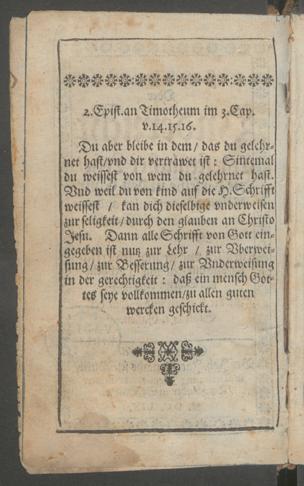 2. Epist. an Timotheum im 3. Cap.
v. 14. 15. 16.
Du aber bleibe in dem / das du gelehr-
net hast / vnd dir vertrawet ist : Sintemal
du weissest von wem du gelehrnet hast.
Vnd weil du von kind auf die H. Schrifft
weissest / kan dich dieselbige vnderweisen
zur seligkeit / durch den glauben an Christo
Jesu. Dann alle Schrifft von Gott ein-
gegeben ist nutz zur Lehr / zur Vberwei-
sung / zur Besserung / zur Vnderweisung
in der gerechtigkeit : daß ein mensch Got-
tes seye vollkommen / zu allen guten
wercken geschickt.